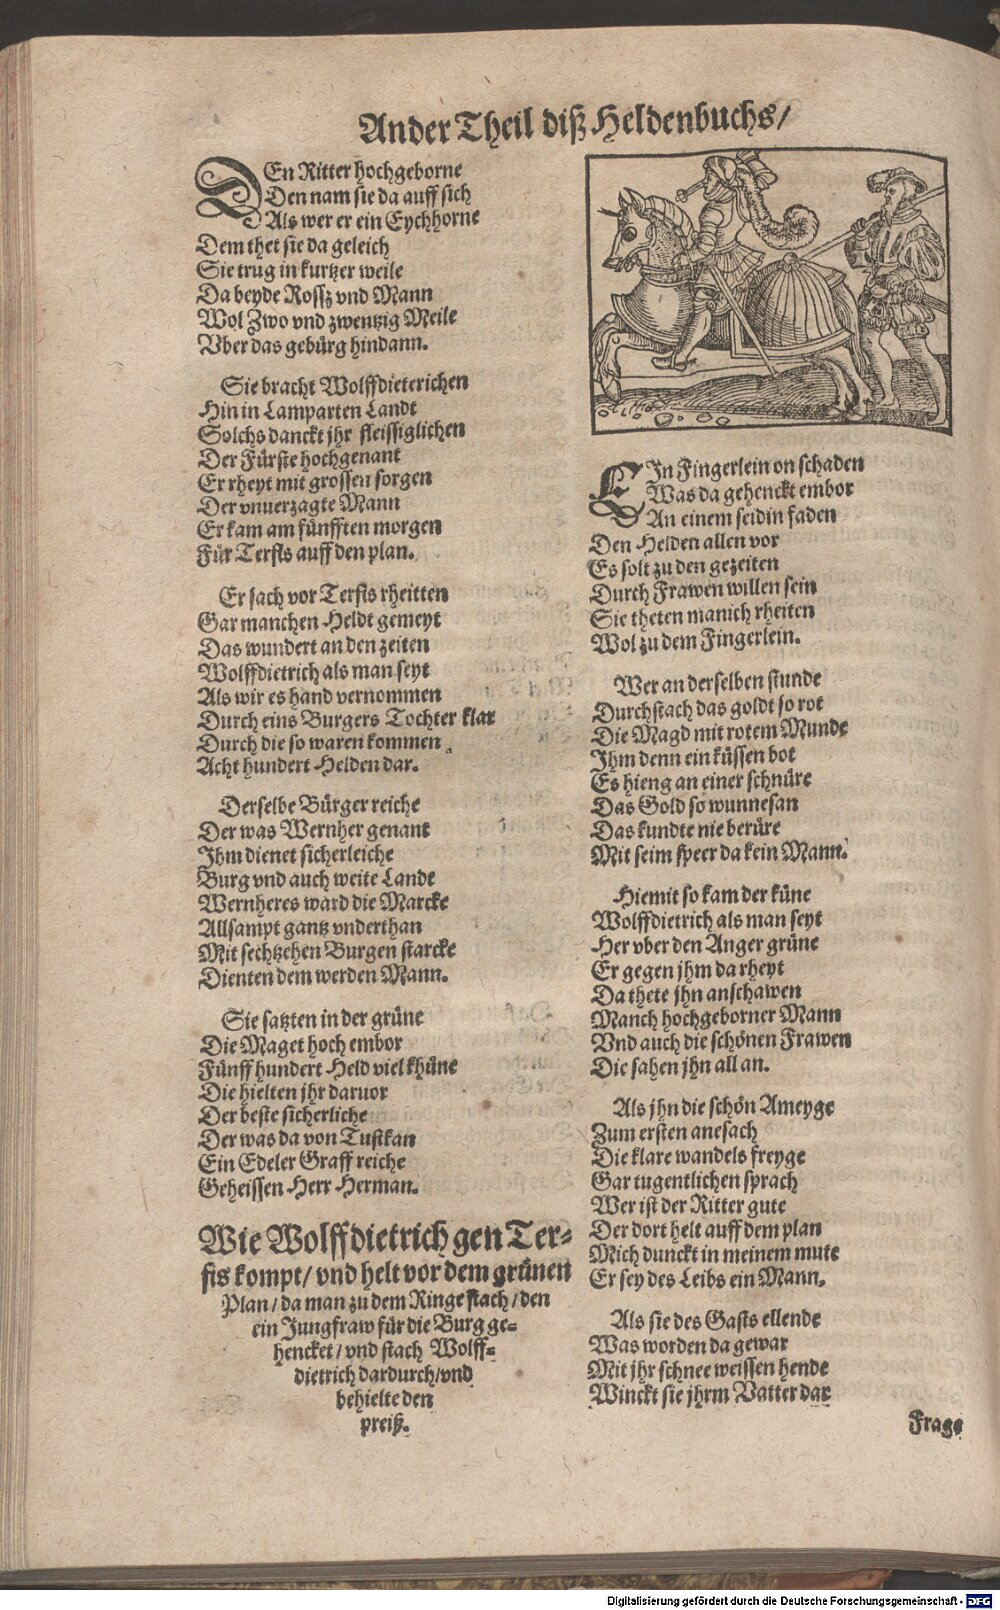 Ander Theil diß Heldenbuchs/
DEn Ritter hochgeborne
Den nam sie da auff sich
Als wer er ein Eychhorne
Dem thet sie da geleich
Sie trug in kurtzer weile
Da beyde Rossz vnd Mann
Wol Zwo vnd zwentzig Meile
Vber das gebürg hindann.
Sie bracht Wolffdieterichen
Hin in Lamparten Landt
Solchs danckt jhr fleissiglichen
Der Fürste hochgenant
Er rheyt mit grossen sorgen
Der vnuerzagte Mann
Er kam am fünfften morgen
Für Terfis auff den plan.
Er sach vor Terfis rheitten
Gar manchen Heldt gemeyt
Das wundert an den zeiten
Wolffdietrich als man seyt
Als wir es hand vernommen
Durch eins Burgers Tochter klar
Durch die so waren kommen
Acht hundert Helden dar.
Derselbe Bürger reiche
Der was Wernher genant
Ihm dienet sicherleiche
Burg vnd auch weite Lande
Wernheres ward die Marcke
Allsampt gantz vnderthan
Mit sechtzehen Burgen starcke
Dienten dem werden Mann.
Sie satzten in der grüne
Die Maget hoch embor
Fünff hundert Held viel khüne
Die hielten jhr daruor
Der beste sicherliche
Der was da von Tustkan
Ein Edeler Graff reiche
Geheissen Herr Herman.
Wie Wolffdietrich gen Ter-
fis kompt/ vnd helt vor dem grünen
Plan/ da man zu dem Ringe stach/ den
ein Jungfraw für die Burg ge-
hencket/ vnd stach Wolff-
dietrich dardurch/ vnd
behielte den
preiß.
EIn Fingerlein on schaden
Was da gehenckt embor
An einem seidin faden
Den Helden allen vor
Es solt zu den gezeiten
Durch Frawen willen sein
Sie theten manich rheiten
Wol zu dem Fingerlein.
Wer an derselben stunde
Durchstach das goldt so rot
Die Magd mit rotem Munde
Ihm denn ein küssen bot
Es hieng an einer schnüre
Das Gold so wunnesan
Das kundte nie berüre
Mit seim speer da kein Mann.
Hiemit so kam der küne
Wolffdietrich als man seyt
Her vber den Anger grüne
Er gegen jhm da rheyt
Da thete jhn anschawen
Manch hochgeborner Mann
Vnd auch die schönen Frawen
Die sahen jhn all an.
Als jhn die schön Ameyge
Zum ersten anesach
Die klare wandels freyge
Gar tugentlichen sprach
Wer ist der Ritter gute
Der dort helt auff dem plan
Mich dunckt in meinem mute
Er sey des Leibs ein Mann.
Als sie des Gasts ellende
Was worden da gewar
Mit jhr schnee weissen hende
Winckt sie jhrm Vatter dar
Frage
Digitalisierung gefördert durch die Deutsche Forschungsgemeinschaft - DFG